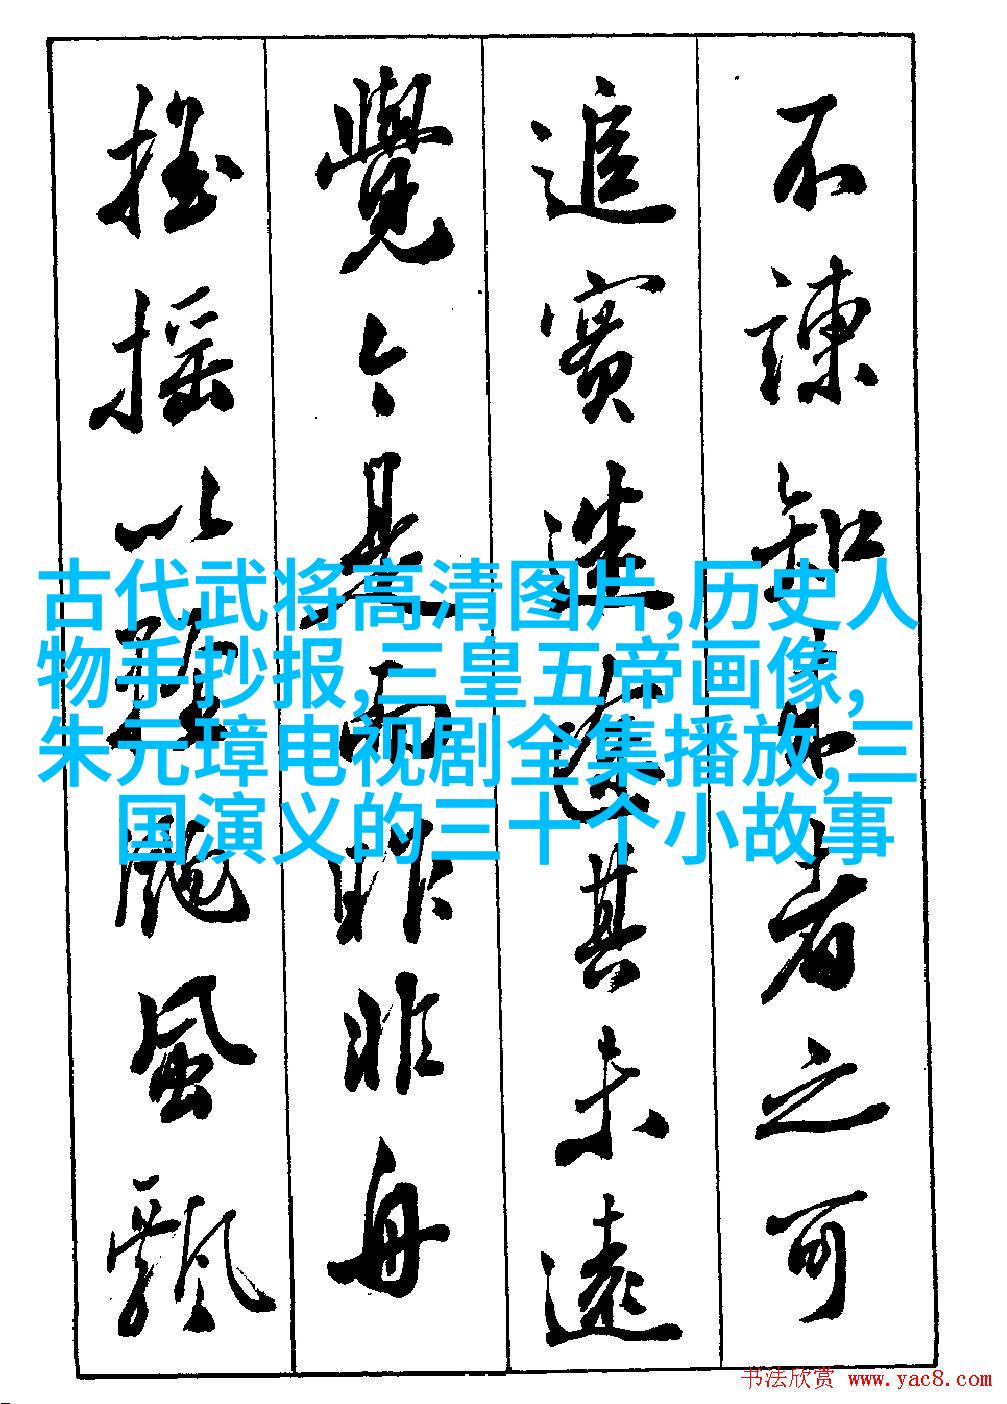 不諫知来者之可
追實迷途其未遠
覺今是而昨非舟
摇摇以輕颺風飄
古代武将高清图片,历史人
物手抄报,三皇五帝画像,
朱元璋电视剧全集播放,三
国演义的三十个小故事
书法欣赏 www.yac8.com